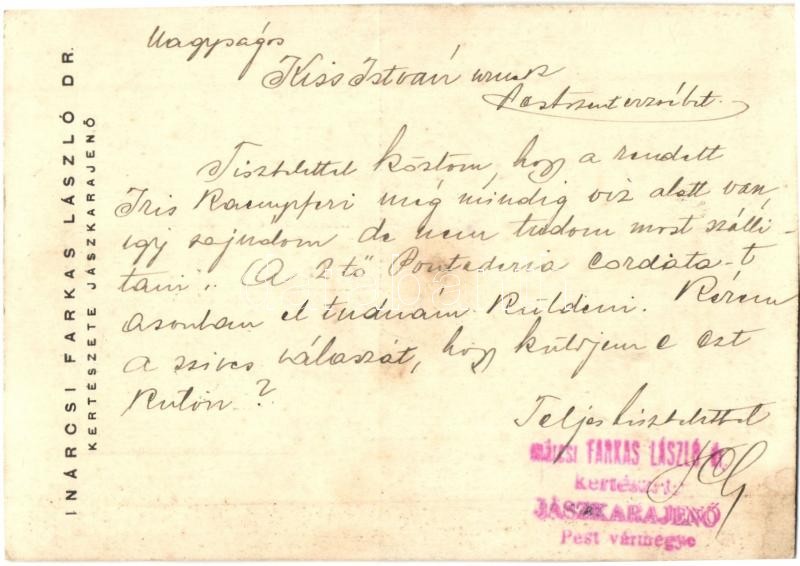 INÁRCSI FARKAS LÁSZLÓ DR.
KERTÉSZETE JÁSZKARAJENŐ
Nagyságos
Kiss István urnak
Pestszenterzsébet.
Tisztelettel közlöm, hogy a rendelt
Iris Kaempferi még mindig viz alatt van,
igy sajnálom de nem tudom most szálli-
tani. A 2 tő Pontederia cordata-t
azonban el tudnám küldeni. Kérem
a szives válaszát, hogy küldjem e ezt
külön?
Teljes tisztelettel
INÁRCSI FARKAS LÁSZLÓ dr.
kertészete
JÁSZKARAJENŐ
Pest vármegye